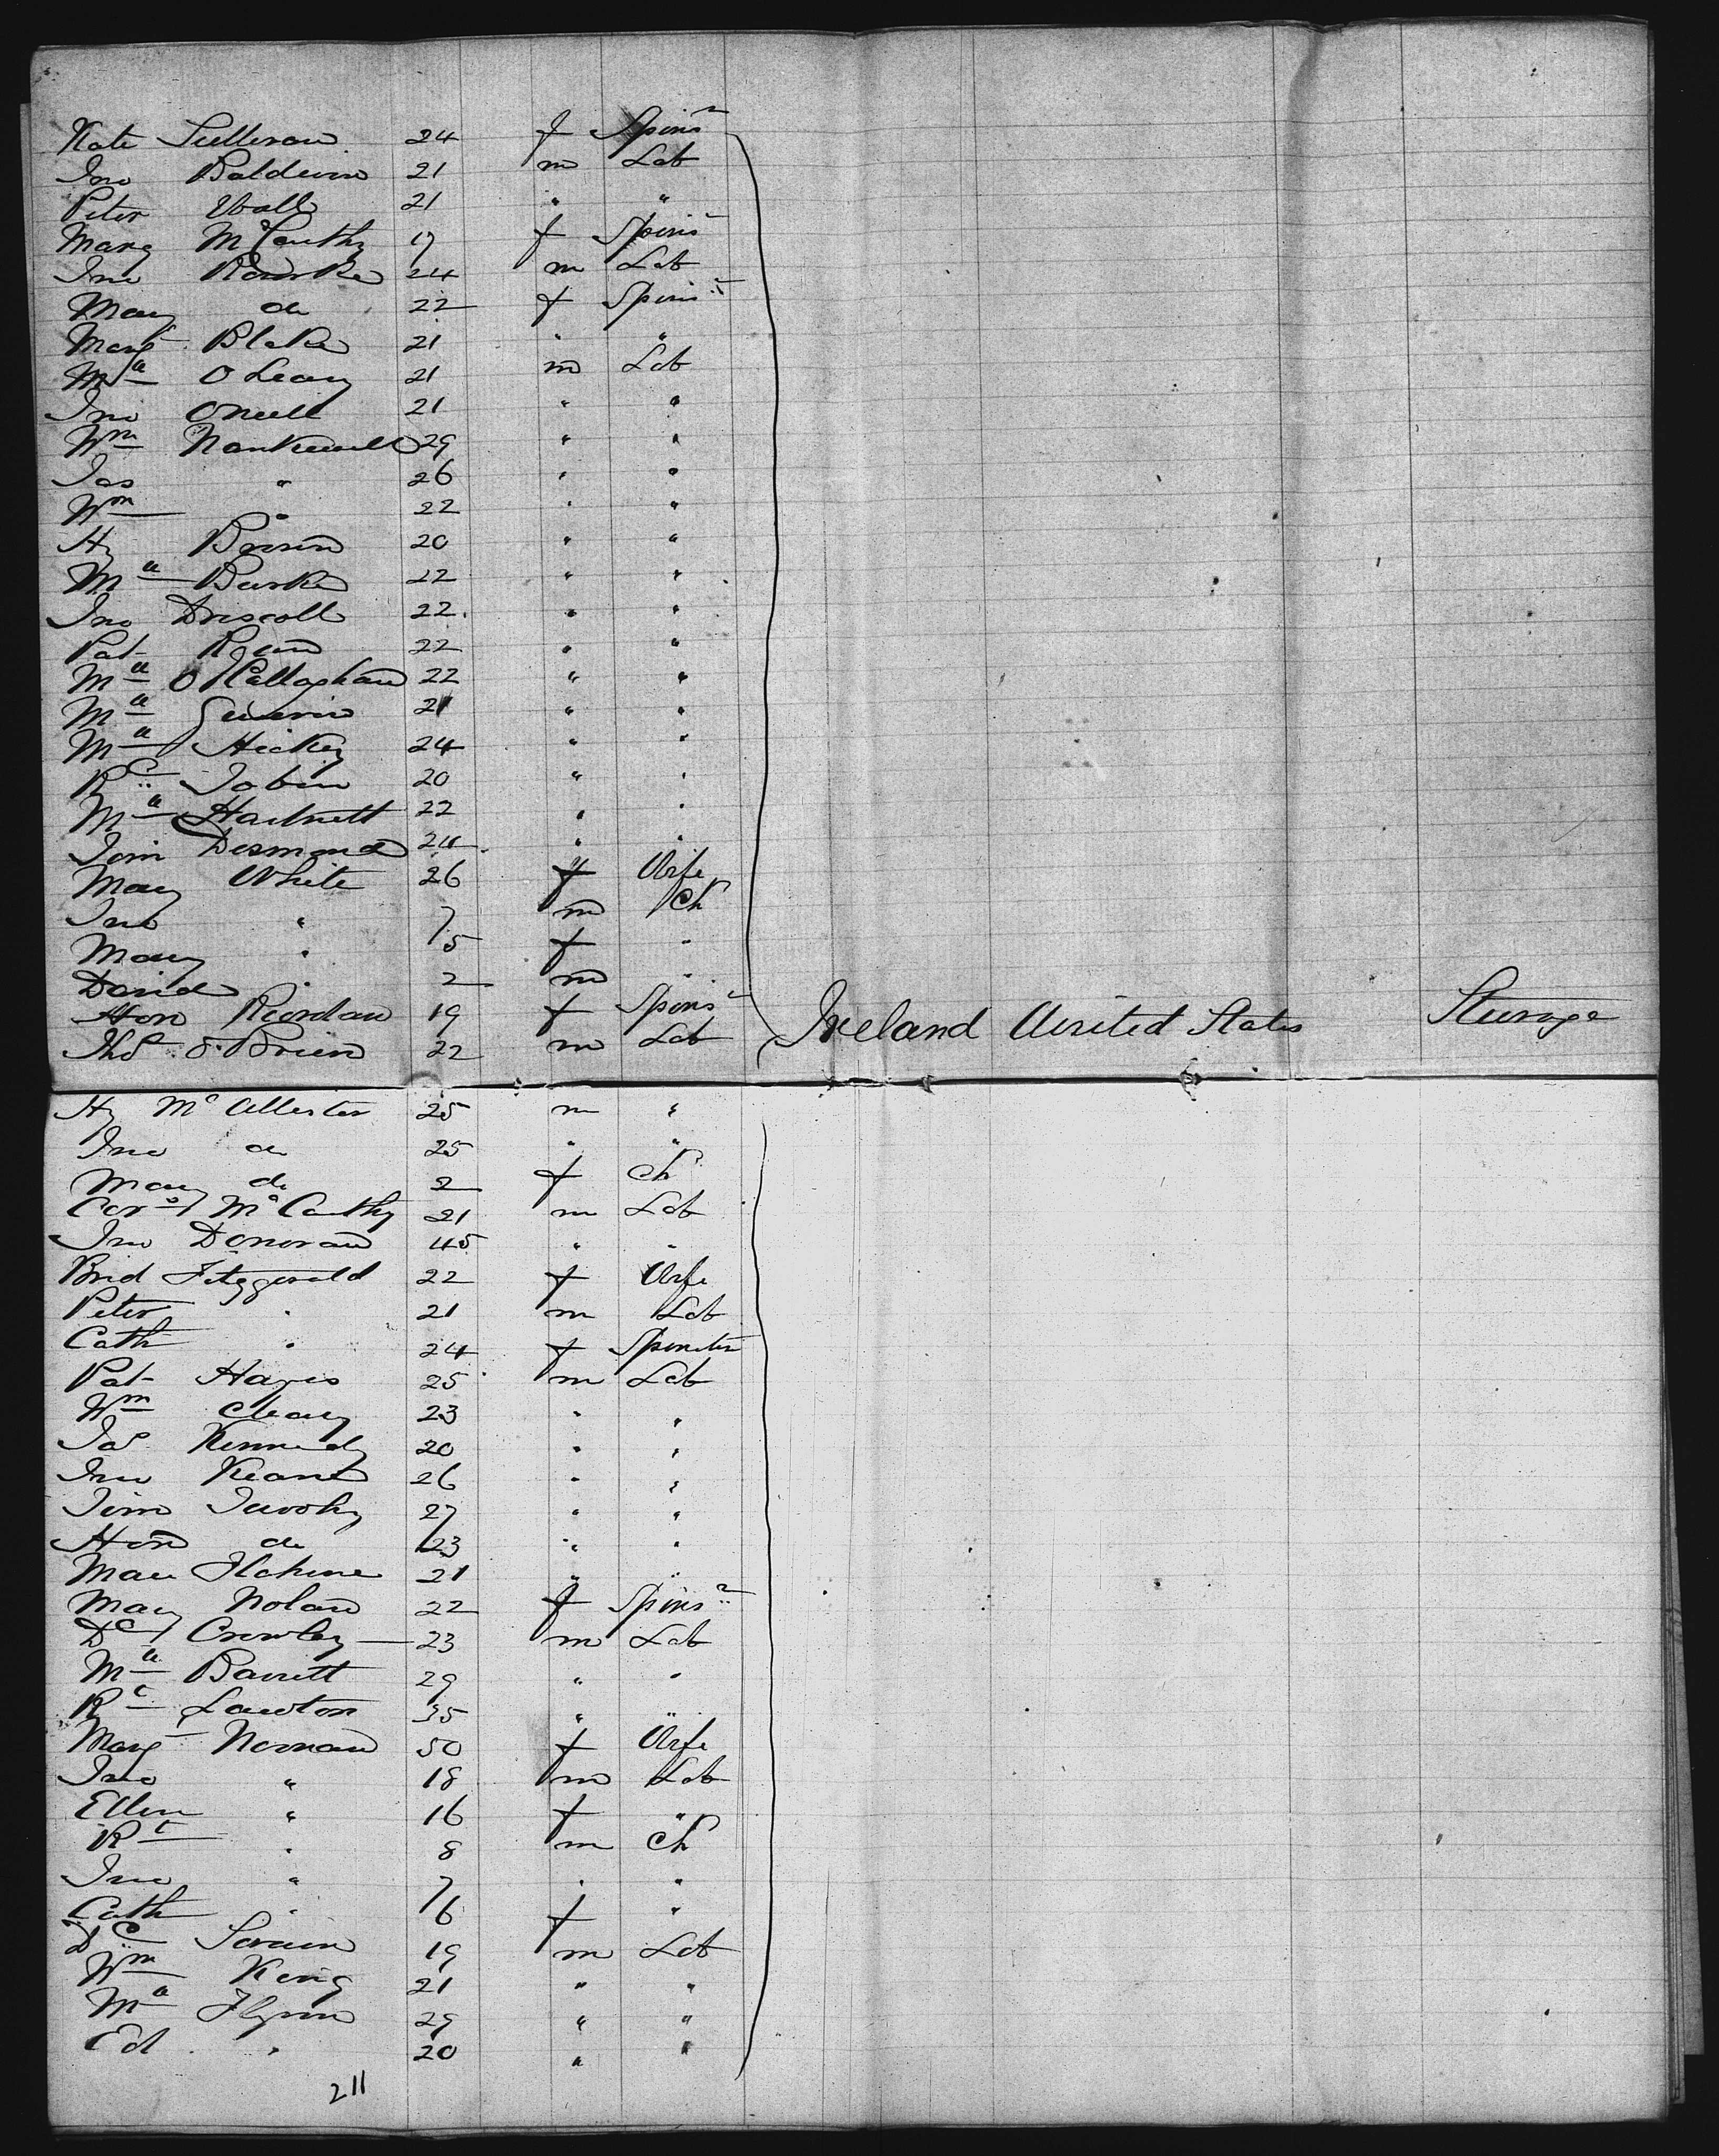 Kate Sullivan 24 f Spins^r
Jno Baldwin 21 m Lab
Peter Wall 21 " "
Mary McCarthy 19 f Spins^r
Jno Rourke 24 m Lab
Mary do 22 f Spins^r
Marg^t Blake 21 " "
M^ll O Leary 21 m Lab
Jno ONeill 21 " "
W^m Nankeivell 29 " "
Jas " 26 " "
W^m " 22 " "
Hy Brown 20 " "
M^ll Burke 22 " "
Jno Driscoll 22 " "
Pat Ryan 22 " "
M^ll O Callaghan 22 " "
M^ll 21 " "
M^ll Hickey 24 " "
R^d Tobin 20 " "
M^ll Hartnett 22 " "
Tim Desmond 24 " "
Mary White 26 f Wife
Jno " 7 m Ch
Mary " 5 f "
David " 2 m "
Hon Riordan 19 f Spins^r
Thos O'Brien 22 m Lab
Ireland United States Steerage
Hy McAllister 25 m "
Jno do 25 " "
Mary do 2 f Ch
Cor^s McCarthy 21 m Lab
Jno Donovan 45 " "
Brid Fitzgerald 22 f Wife
Peter " 21 m Lab
Cath " 24 f Spinster
Pat Hayes 25 m Lab
W^m Cleary 23 " "
Jas Kennedy 20 " "
Jno Keane 26 " "
Tim Twohy 27 " "
Hon do 23 " "
Mau 21 " "
Mary Nolan 22 f Spins^r
D^l Crowley 23 m Lab
M^ll Barrett 29 " "
R^d Lawton 35 " "
Marg^t Noonan 50 f Wife
Jno " 18 m Lab
Ellen " 16 f "
R^t " 8 m Ch
Jno " 7 " "
Cath " 6 f "
D^l 19 m Lab
W^m King 21 " "
M^ll Flynn 29 " "
Ed " 20 " "
211